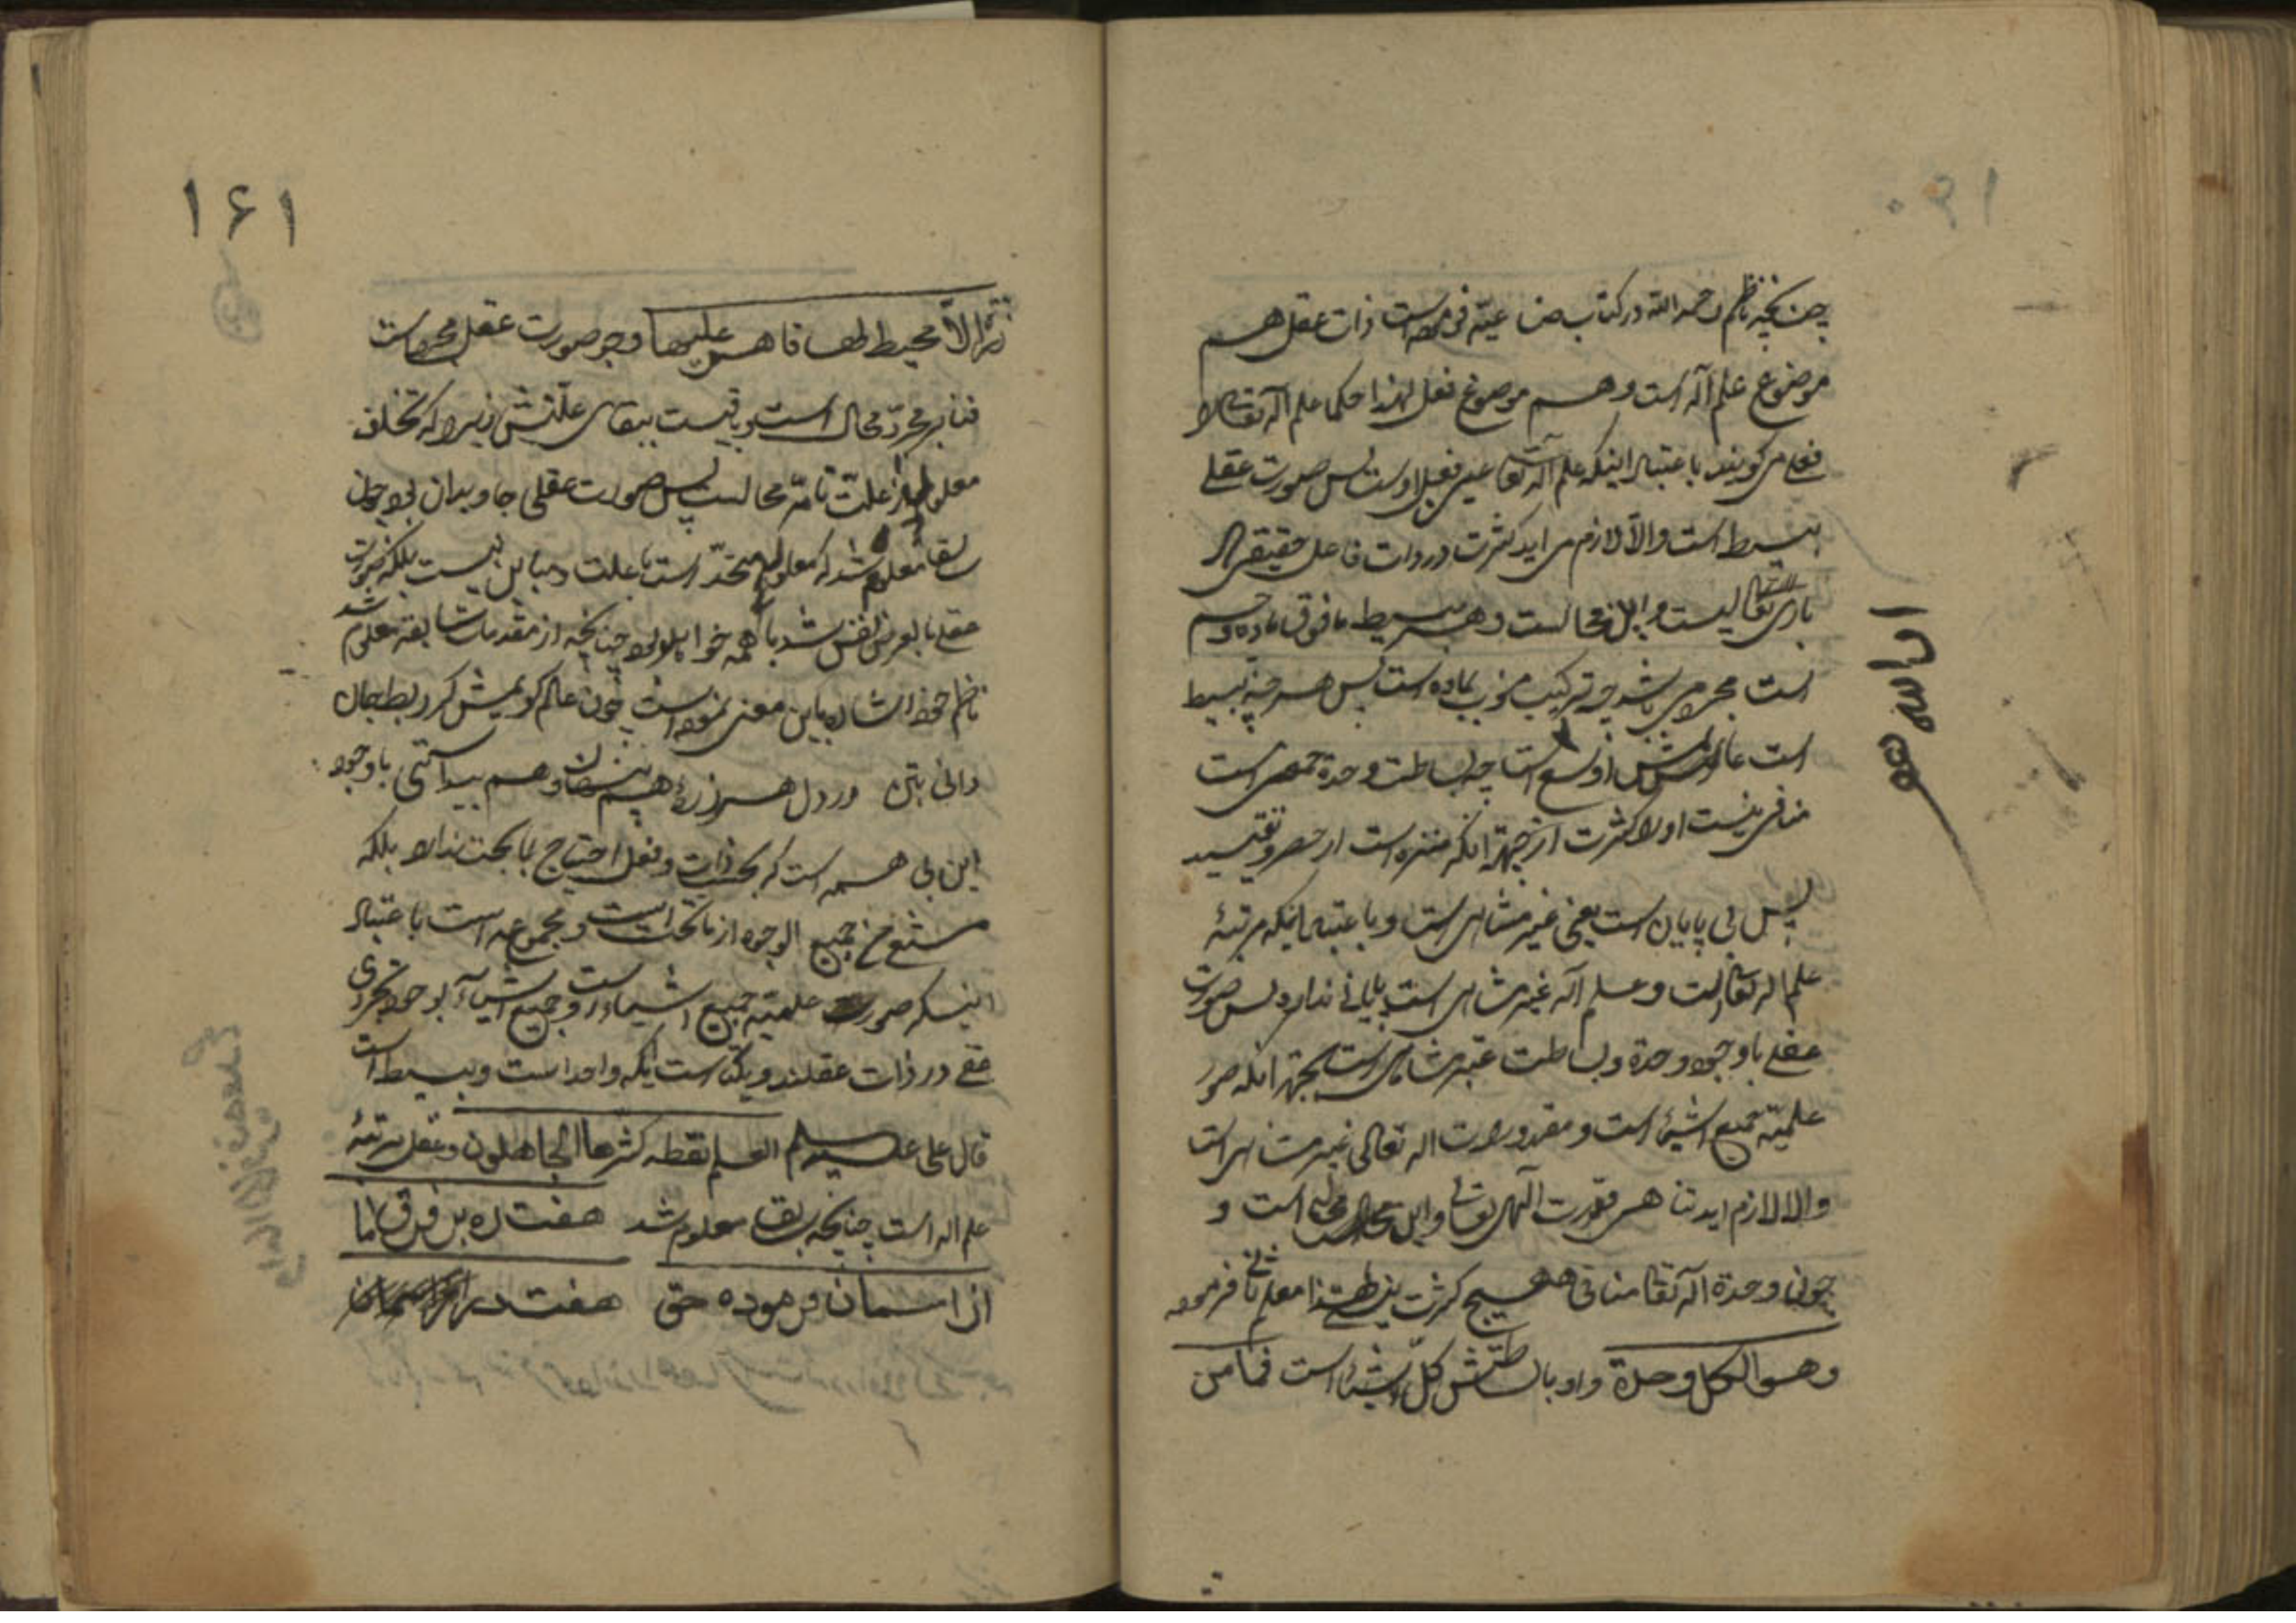 چنانچه ناظم رحمه الله در کتاب صناعیه فرموده است ذات عقل هم
موضوع علم آله است و هم موضوع فعل لهذا حکما علم آله تعالی را
فعلی می‌گویند باعتبار اینکه علم آله تعالی عین فعل اوست پس صورت عقلی
بسیط است والّا لازم می‌اید کثرت در ذات فاعل حقیقی که
باری تعالیست و این محالست و هر بسیط مافوق ماده و جسم
است مجرد می‌باشد چه ترکیب مخزن ماده است پس هر چه بسیط
است اوسع است چه بساطت وحدة جمعی است
منافی نیست او را کثرت از جهة انکه منزه است از حصر و تقیید
پس بی پایان است یعنی غیر متناهی است و باعتبار اینکه مرتبهٔ
علم اله تعالی است و علم آله غیر متناهی است پایانی ندارد پس صورت
عقلی باوجود وحدة و بساطت غیر متناهی است بجهة انکه صور
علمیّه جمیع اشیا است و مقدورات اله تعالی غیر متناهی است
والا لازم اید تناهی قدرت الهی تعالی و این محال است و
چون وحدة آله تعالی منافی هیچ کثرت نیست لهذا معلم ثانی فرموده
وهو الکل وحدة و او بالبساطتش کل اشیا است فما من
ان الله هو
۱۶۱
ذرّة الّا محیط بها قاهر علیها و چو صورت عقل مجرد است
فنا بر مجرّد محال است و باقیست ببقای علّتش زیرا که تخلف
معلول از علّت تامّه محالست پس صورت عقلی جاویدان بود چون
سابقا معلوم شد که معلول متحد است با علت و مباین نیست بلکه صورت
عقلی بالعرض نفس شد با همه خواهد بود چنانچه از مقدمات سابقه معلوم شد
ناظم خود اشاره باین معنی نموده است چون عالم گویمیش کر ربط جان
دانی بتن در دل هر ذرّهٔ هم پنهان و هم پیداستی باوجود
این بی همه است که بحسب ذات و فعل احتیاج بما تحت ندارد بلکه
مستغنی من جمیع الوجوه از ماتحت است و مجموعه است باعتبار
اینکه صورت علمیّه جمیع اشیاء است و جمیع اشیا بوجود تجردی
عقلی در ذات عقلند و یکتا است اینکه واحد است و بسیط است
قال علی علیه السلم العلم نقطه کثرها الجاهلون و عقل مرتبهٔ
علم اله است چنانچه سابقا معلوم شد هفت ره بر فرق ما
از اسمان فرموده حق هفت در